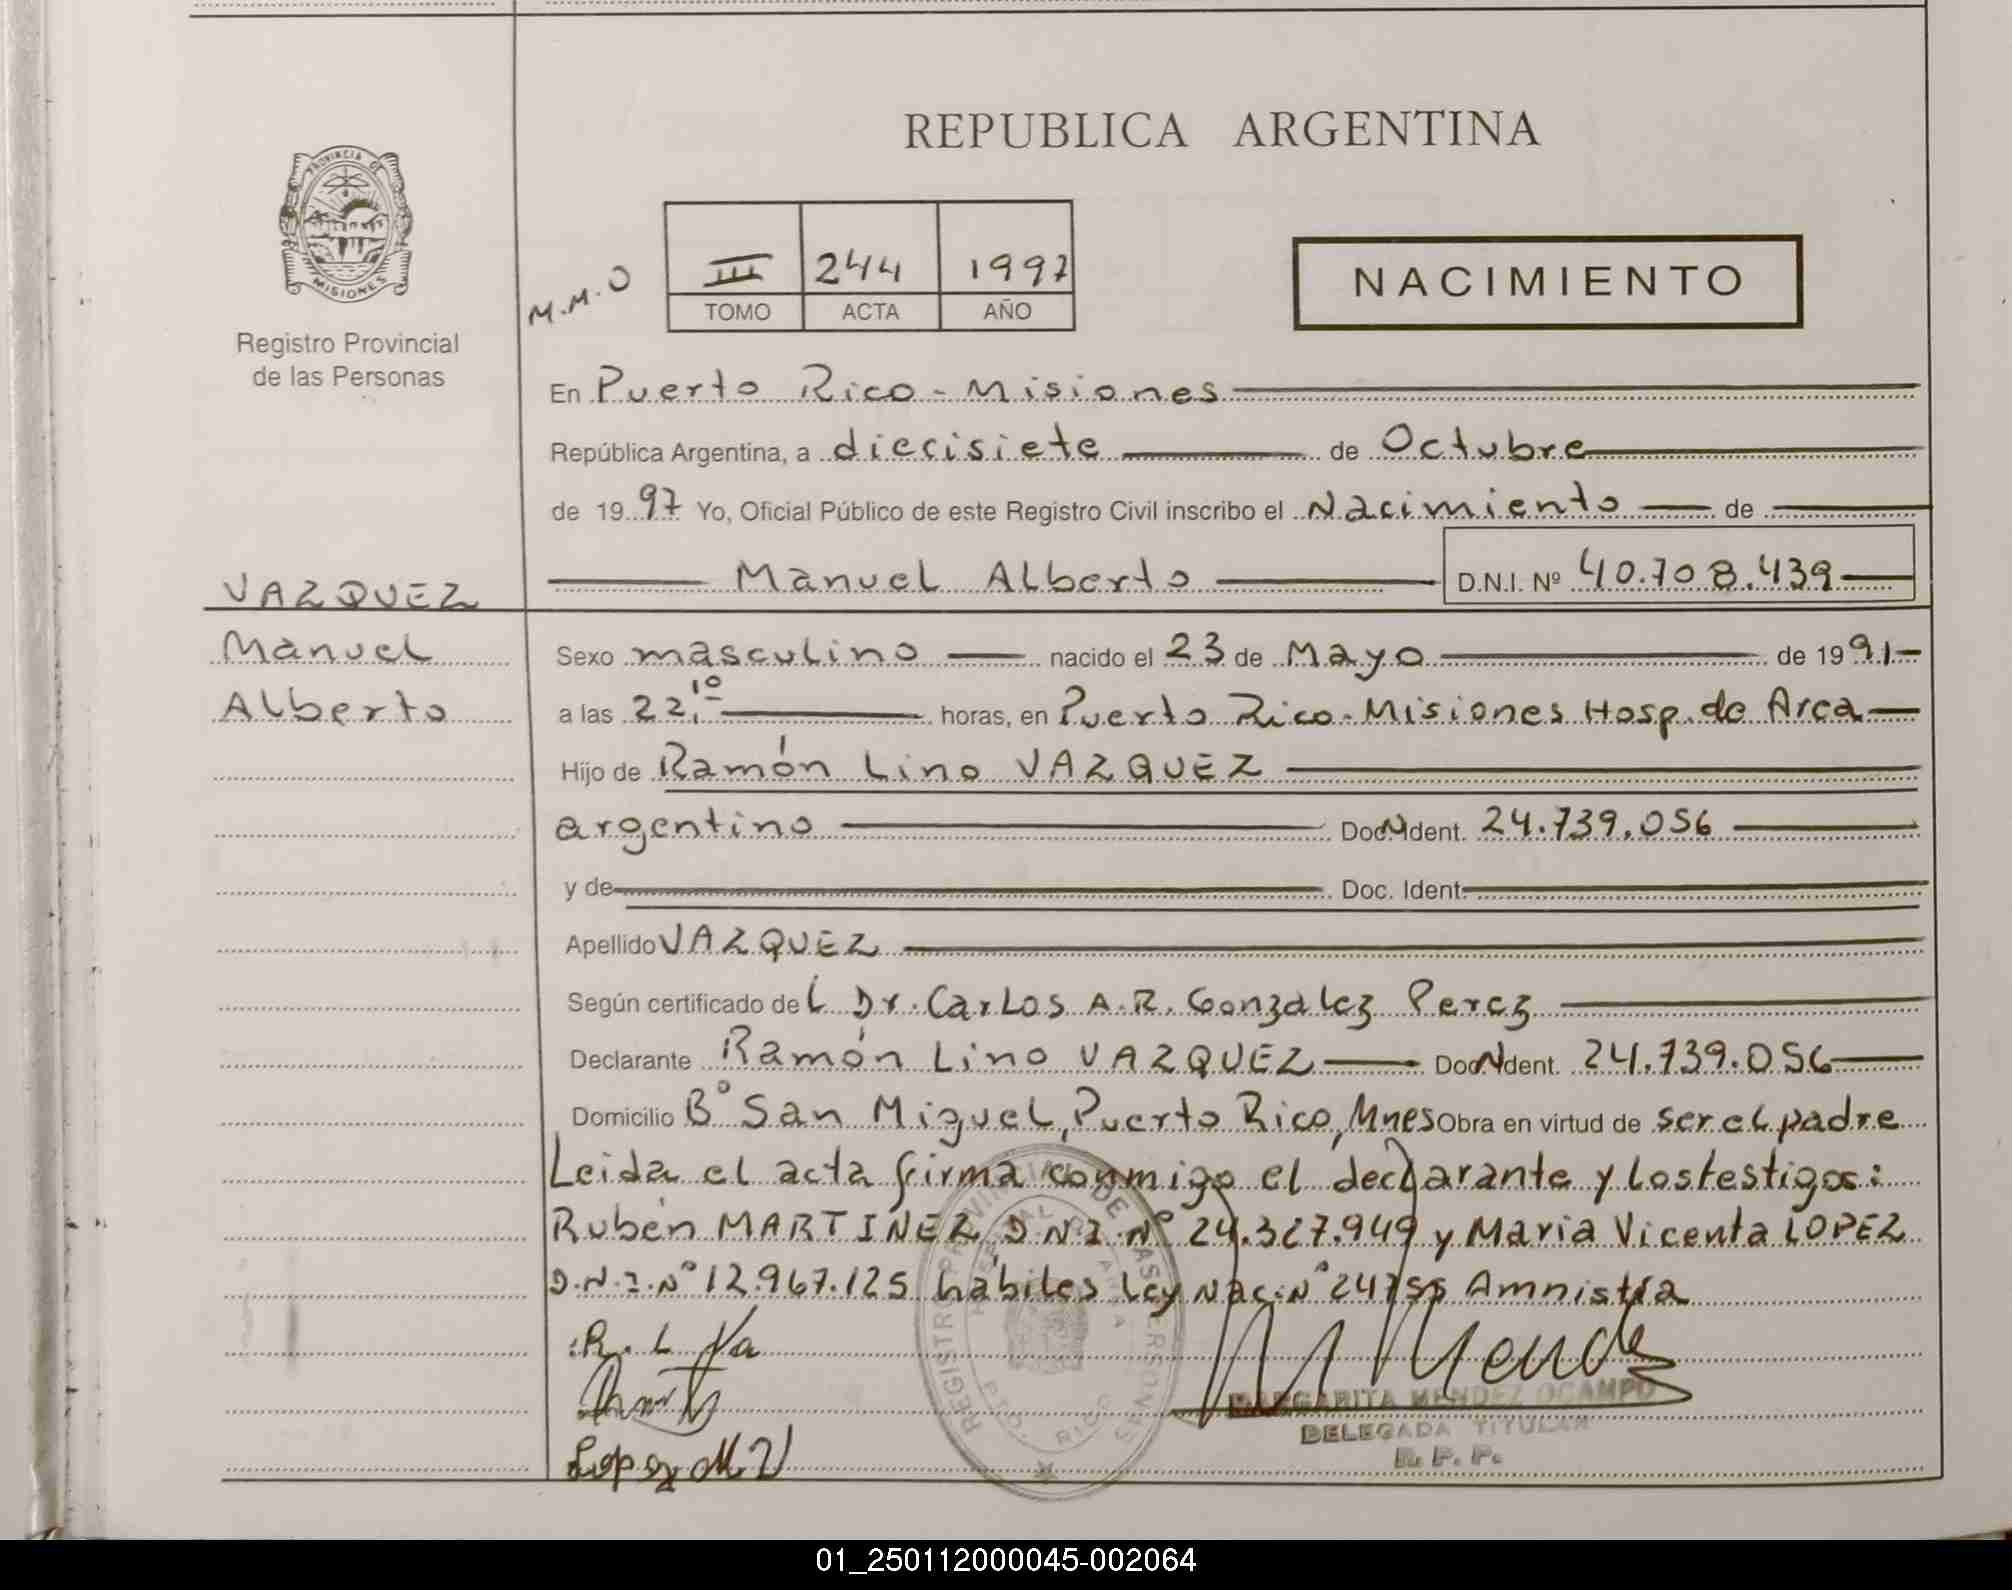 REPUBLICA ARGENTINA
PROVINCIA DE
MISIONES
Registro Provincial
de las Personas
M.M.O
III 244 1997
TOMO ACTA AÑO
NACIMIENTO
En Puerto Rico - Misiones
República Argentina, a diecisiete de Octubre
de 1997 Yo, Oficial Público de este Registro Civil inscribo el Nacimiento de
Manuel Alberto D.N.I. Nº 40.708.439
VAZQUEZ
Manuel
Alberto
Sexo masculino nacido el 23 de Mayo de 1991
a las 22,10 horas, en Puerto Rico - Misiones Hosp. de Area
Hijo de Ramón Lino VAZQUEZ
argentino Doc. N Ident. 24.739.056
y de Doc. Ident.
Apellido VAZQUEZ
Según certificado del Dr. Carlos A.R. Gonzalez Perez
Declarante Ramón Lino VAZQUEZ Doc. N Ident. 24.739.056
Domicilio Bº San Miguel, Puerto Rico, Mnes Obra en virtud de ser el padre
Leida el acta firma conmigo el declarante y los testigos:
Rubén MARTINEZ D.N.I. Nº 24.327.949 y Maria Vicenta LOPEZ
D.N.I. Nº 12.967.125 hábiles Ley Nac. Nº 24755 Amnistía
R. L Va
Lopez M V
REGISTRO PROVINCIAL DE LAS PERSONAS
PTO. RICO
MARGARITA MENDEZ OCAMPO
DELEGADA TITULAR
R. P. P.
01_250112000045-002064